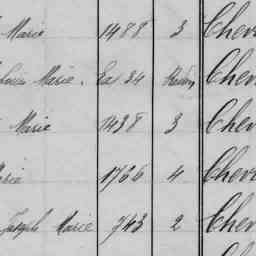 Marie 1488 3 Chev
Marie. Ex 34 Chev
Marie 1438 3 Chev
1766 4 Chev
Joseph Marie 743 2 Chev